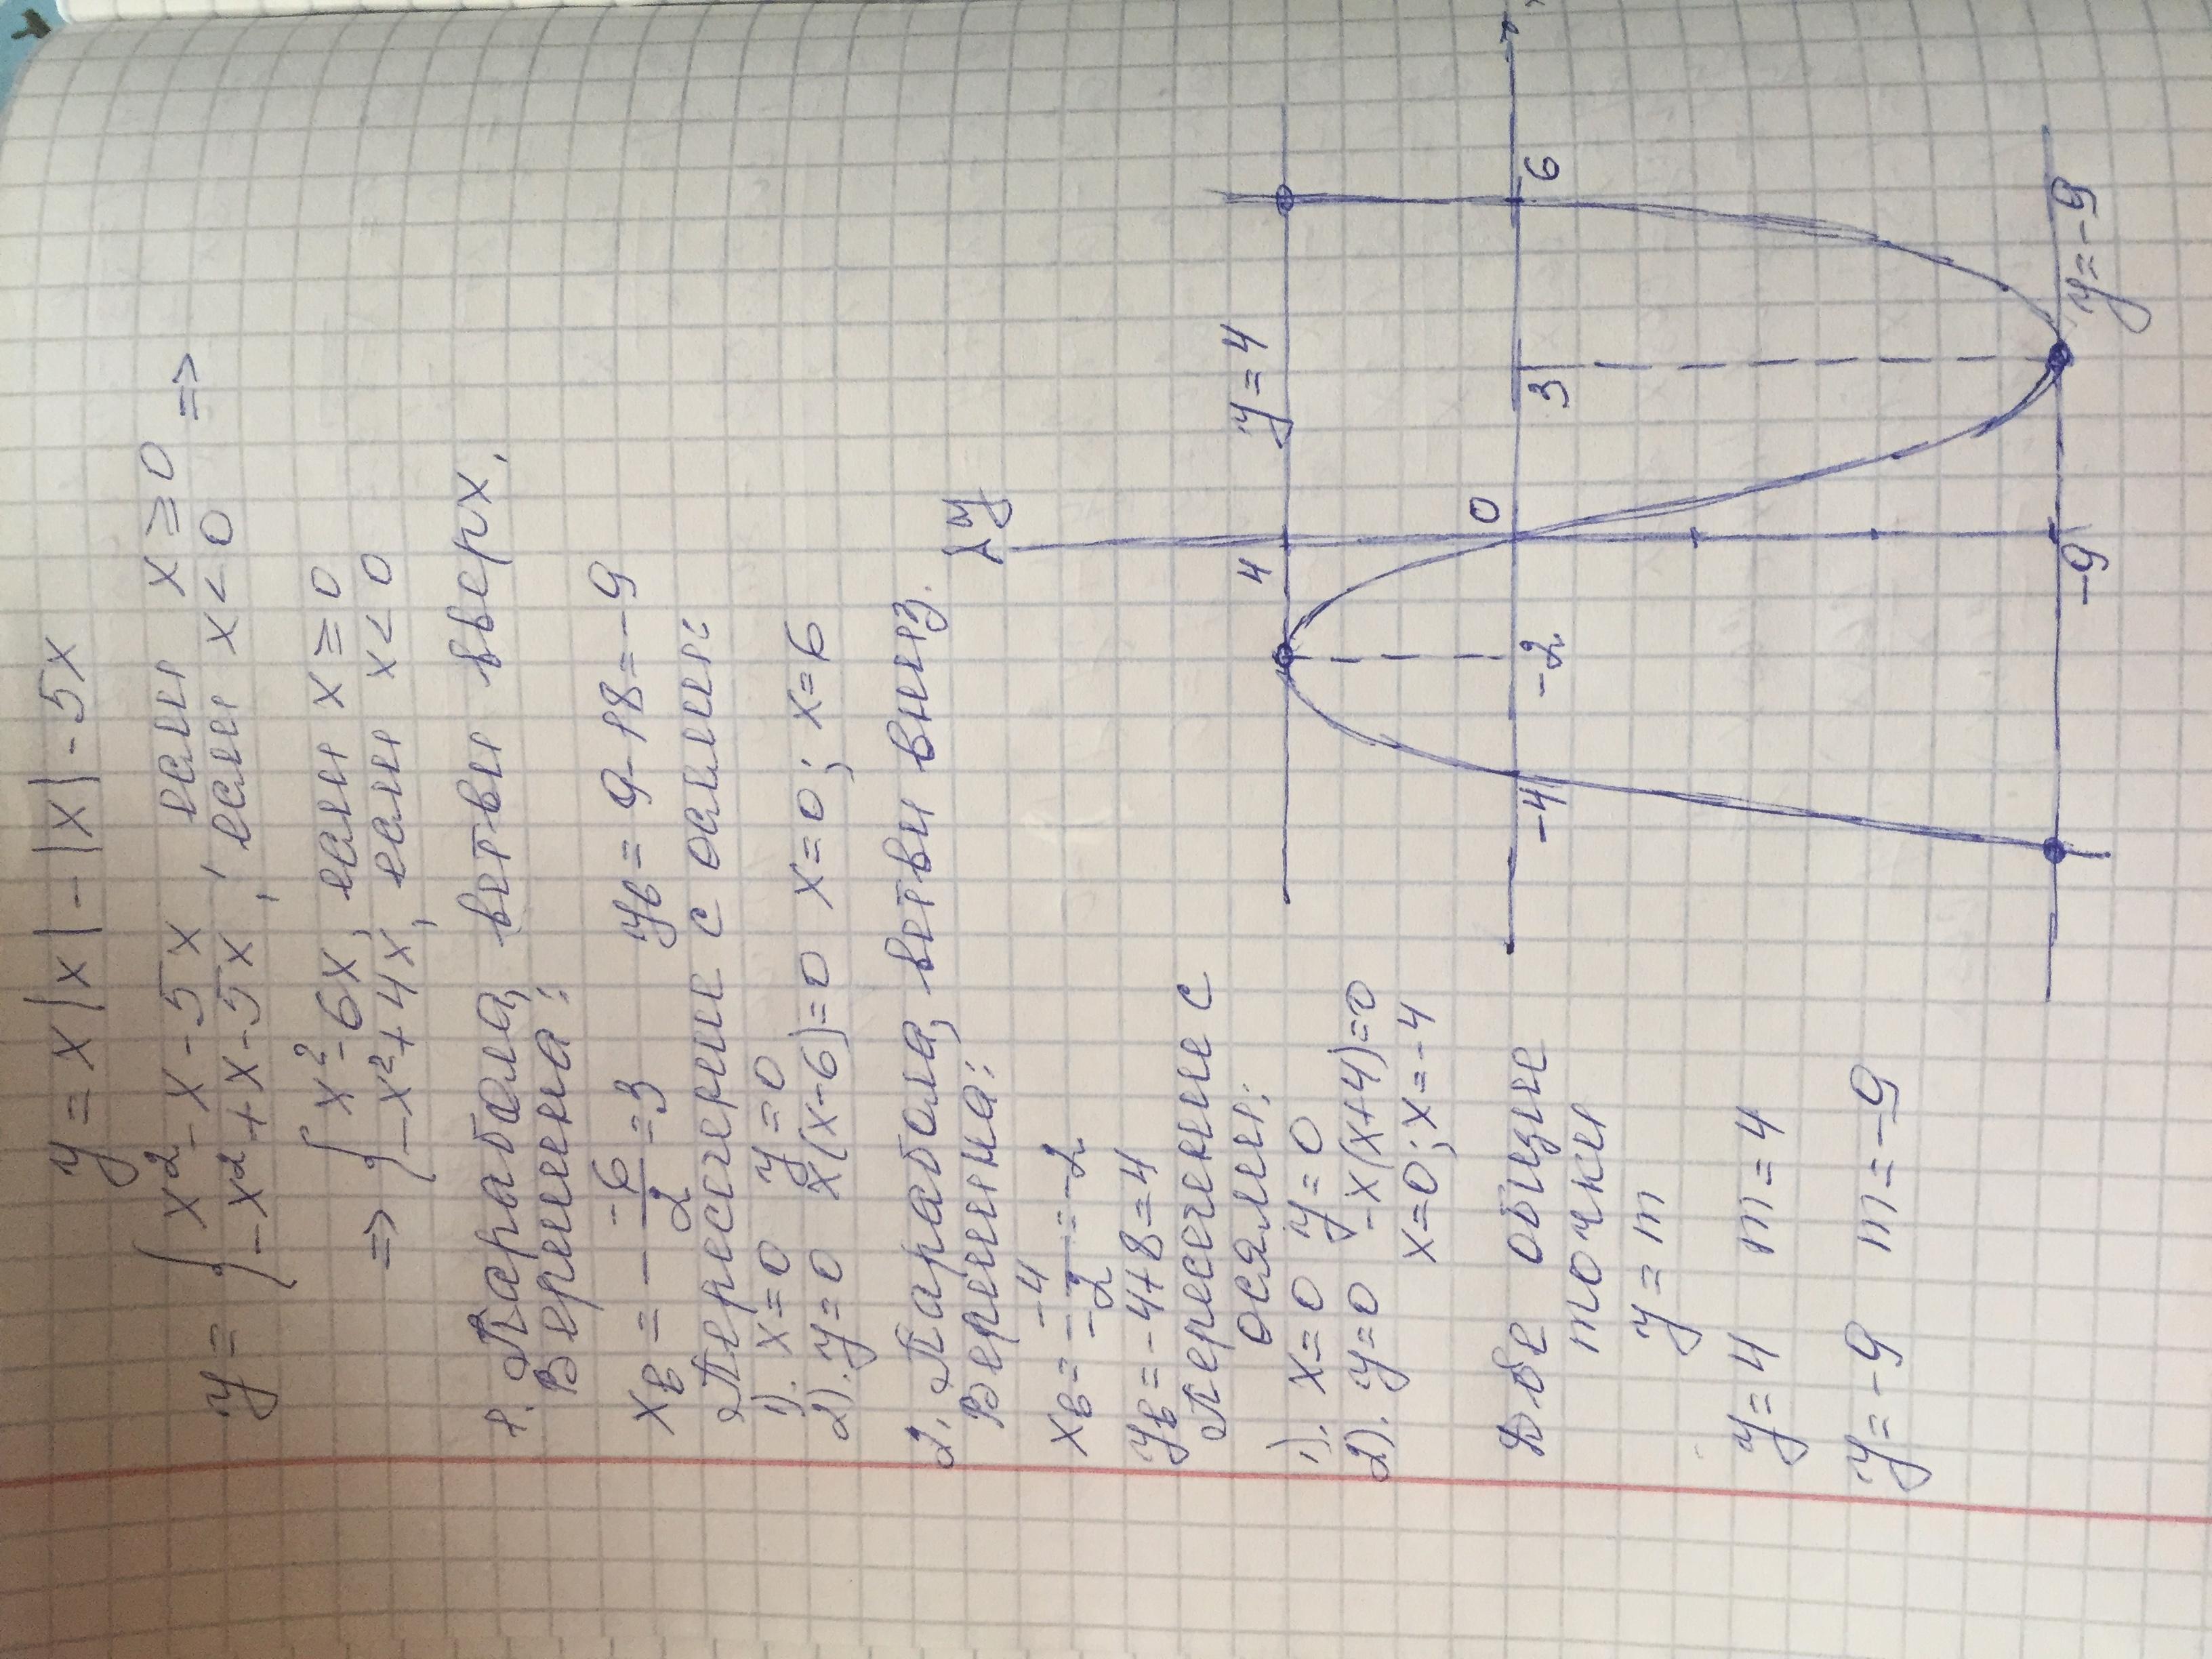 y = x|x| - |x| - 5x
y = { x² - x - 5x, если x ≥ 0
-x² + x - 5x, если x < 0 =>
=> { x² - 6x, если x ≥ 0
-x² + 4x, если x < 0
1. Парабола, ветви вверх.
Вершина:
xв = - -6/2 = 3 yв = 9 - 18 = -9
Пересечение с осями:
1). x = 0 y = 0
2). y = 0 x(x-6) = 0 x = 0; x = 6
2. Парабола, ветви вниз.
Вершина:
xв = - -4/-2 = -2
yв = -4 + 8 = 4
Пересечение с
осями:
1). x = 0 y = 0
2). y = 0 -x(x+4) = 0
x = 0; x = -4
Две общие
точки
y = m
y = 4 m = 4
y = -9 m = -9
y
4
y = 4
0
-4
-2
3
6
x
-9
y = -9